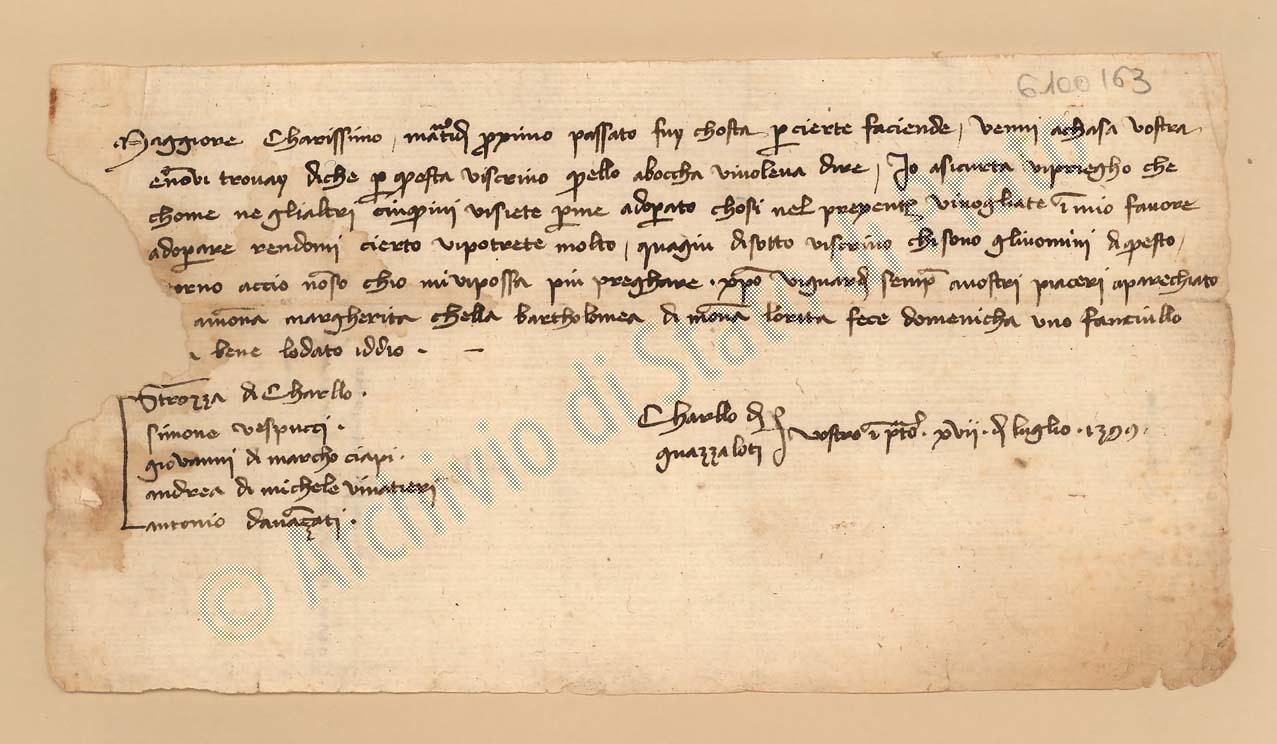 6100163
Maggiore Charissimo, martidi proximo passato fuy chosta per cierte faciende, venni achasa vostra
e nonvi trovay diche per questa viscrivo quello aboccha vivoleva dire, Io asicurta vipriegho che
chome ne glialtri isquittini visiete per me adoperato chosi nel prexente vivogliate in mio favore
adoperare rendomi cierto vipotrete molto, quagiu disotto viscrivo chi sono gliuomini di questo
accio nonso chio mi vipossa piu preghare. xpo viguardi sempre avostri piaceri aparechiato
a mona margherita chella bartholomea di mona lorita fece domenicha uno fanciullo
bene lodato iddio.
Strozza di Charllo.
simone vespucci.
giovanni di marcho ciapi.
andrea di michele vinatieri
antonio davanzati.
Charllo de
guazzaloti
vostro in prato. xvii. di luglio. 1399.
© Archivio di Stato di Prato